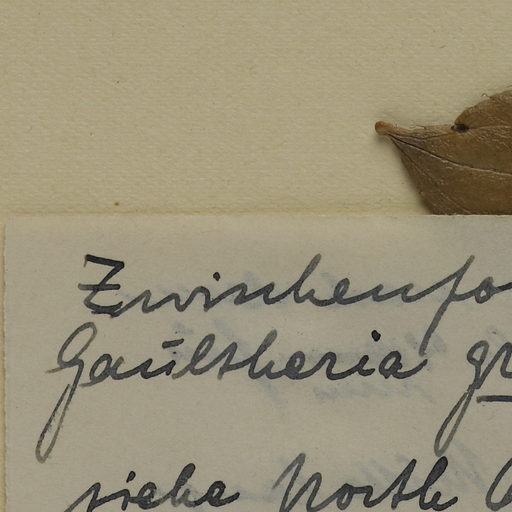 Zwischenfo
Gaultheria gr
siehe North